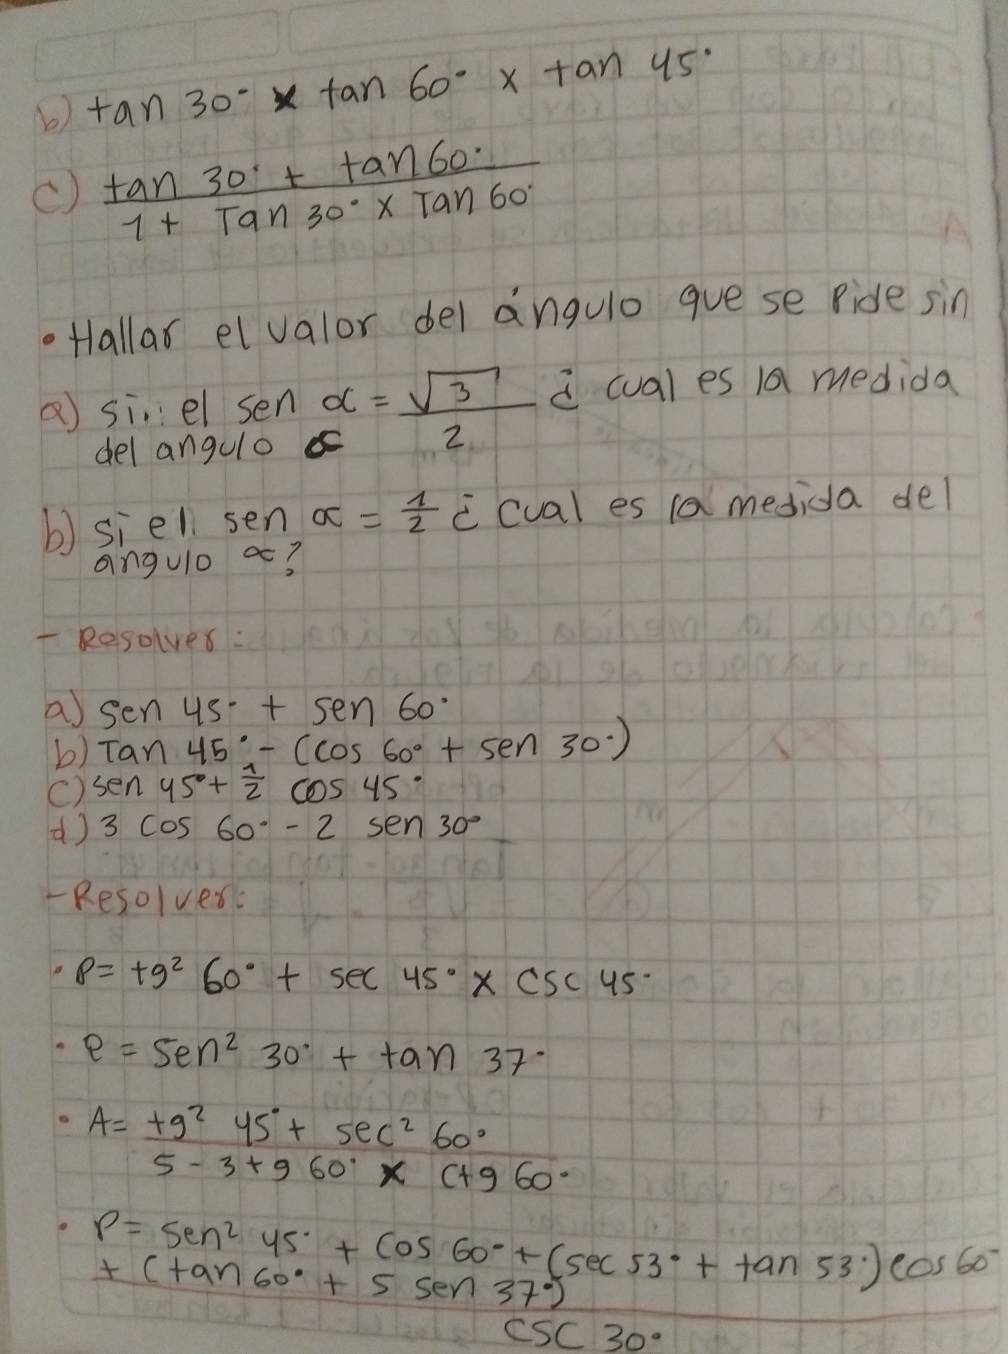 b) tan 30° x tan 60° x tan 45°
c) tan 30° + tan 60°
1 + Tan 30° x Tan 60°
• Hallar el valor del ángulo que se pide sin
a) si el sen α = √3 ¿ cual es la medida
2
del angulo α
b) si el sen α = 1/2 ¿ cual es la medida del
angulo α?
- Resolver:
a) sen 45° + sen 60°
b) Tan 45° - (cos 60° + sen 30°)
c) sen 45° + 1/2 cos 45°
d) 3 cos 60° - 2 sen 30°
- Resolver:
• P = tg² 60° + sec 45° x csc 45°
• P = sen² 30° + tan 37°
• A = tg² 45° + sec² 60°
5 - 3 tg 60° x ctg 60°
• P = sen² 45° + cos 60° + (sec 53° + tan 53°) cos 60°
+ (tan 60° + 5 sen 37°)
csc 30°